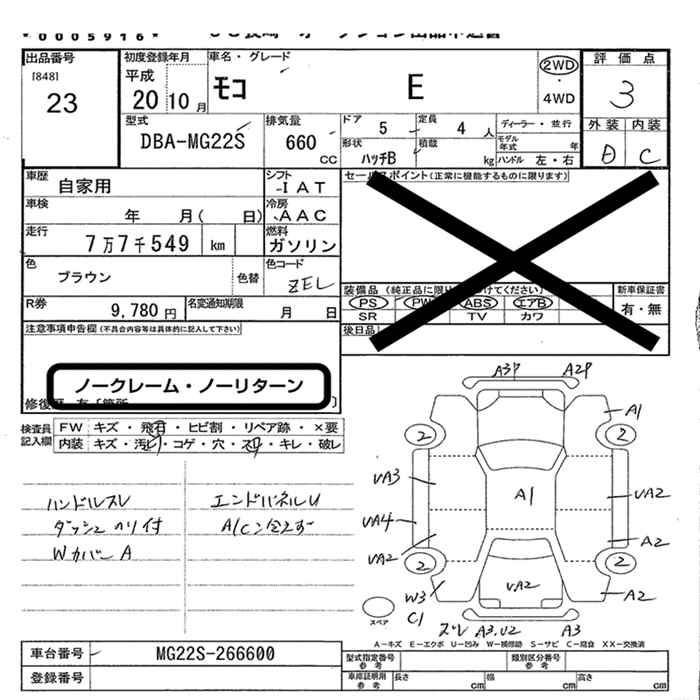 0005916
出品番号
[848]
23
初度登録年月
平成
20 10 月
車名・グレード
モコ E
2WD
・
4WD
評価点
3
外装 内装
D C
型式
DBA-MG22S
排気量
660 cc
ドア 5
定員 4 人
ディーラー・並行
形状 ハッチB
積載 kg
モデル年式 年
ハンドル 左・右
車歴 自家用
シフト IAT
セールスポイント(正常に機能するものに限ります)
車検 年 月( 日)
冷房 AAC
走行 7万7千549 km
燃料 ガソリン
色 ブラウン 色替
色コード ZEL
装備品 (純正品に限り
けてください)
新車保証書
PS PW ABS エアB
有・無
SR TV カワ
R券 9,780 円
名変通知期限 月 日
後日品
注意事項申告欄 (不具合内容等は具体的に記入して下さい)
ノークレーム・ノーリターン
検査員記入欄
FW キズ・飛石・ヒビ割・リペア跡・×要
内装 キズ・汚レ・コゲ・穴・スレ・キレ・破レ
ハンドルスレ
ダッシュノリ付
Wカバー A
エンドパネルU
A3P A2P
A1
2 2
UA3
A1
UA2
UA4
UA2
A2
2 2
UA2
W3
A2
C1
スペア
ズレ A3.U2 A3
A—キズ E—エクボ U—凹み W—補修跡 S—サビ C—腐食 XX—交換済
車台番号 MG22S-266600
型式指定番号
参考
類別区分番号
参考
登録番号
車庫証明用
参考
長さ cm
幅 cm
高さ cm